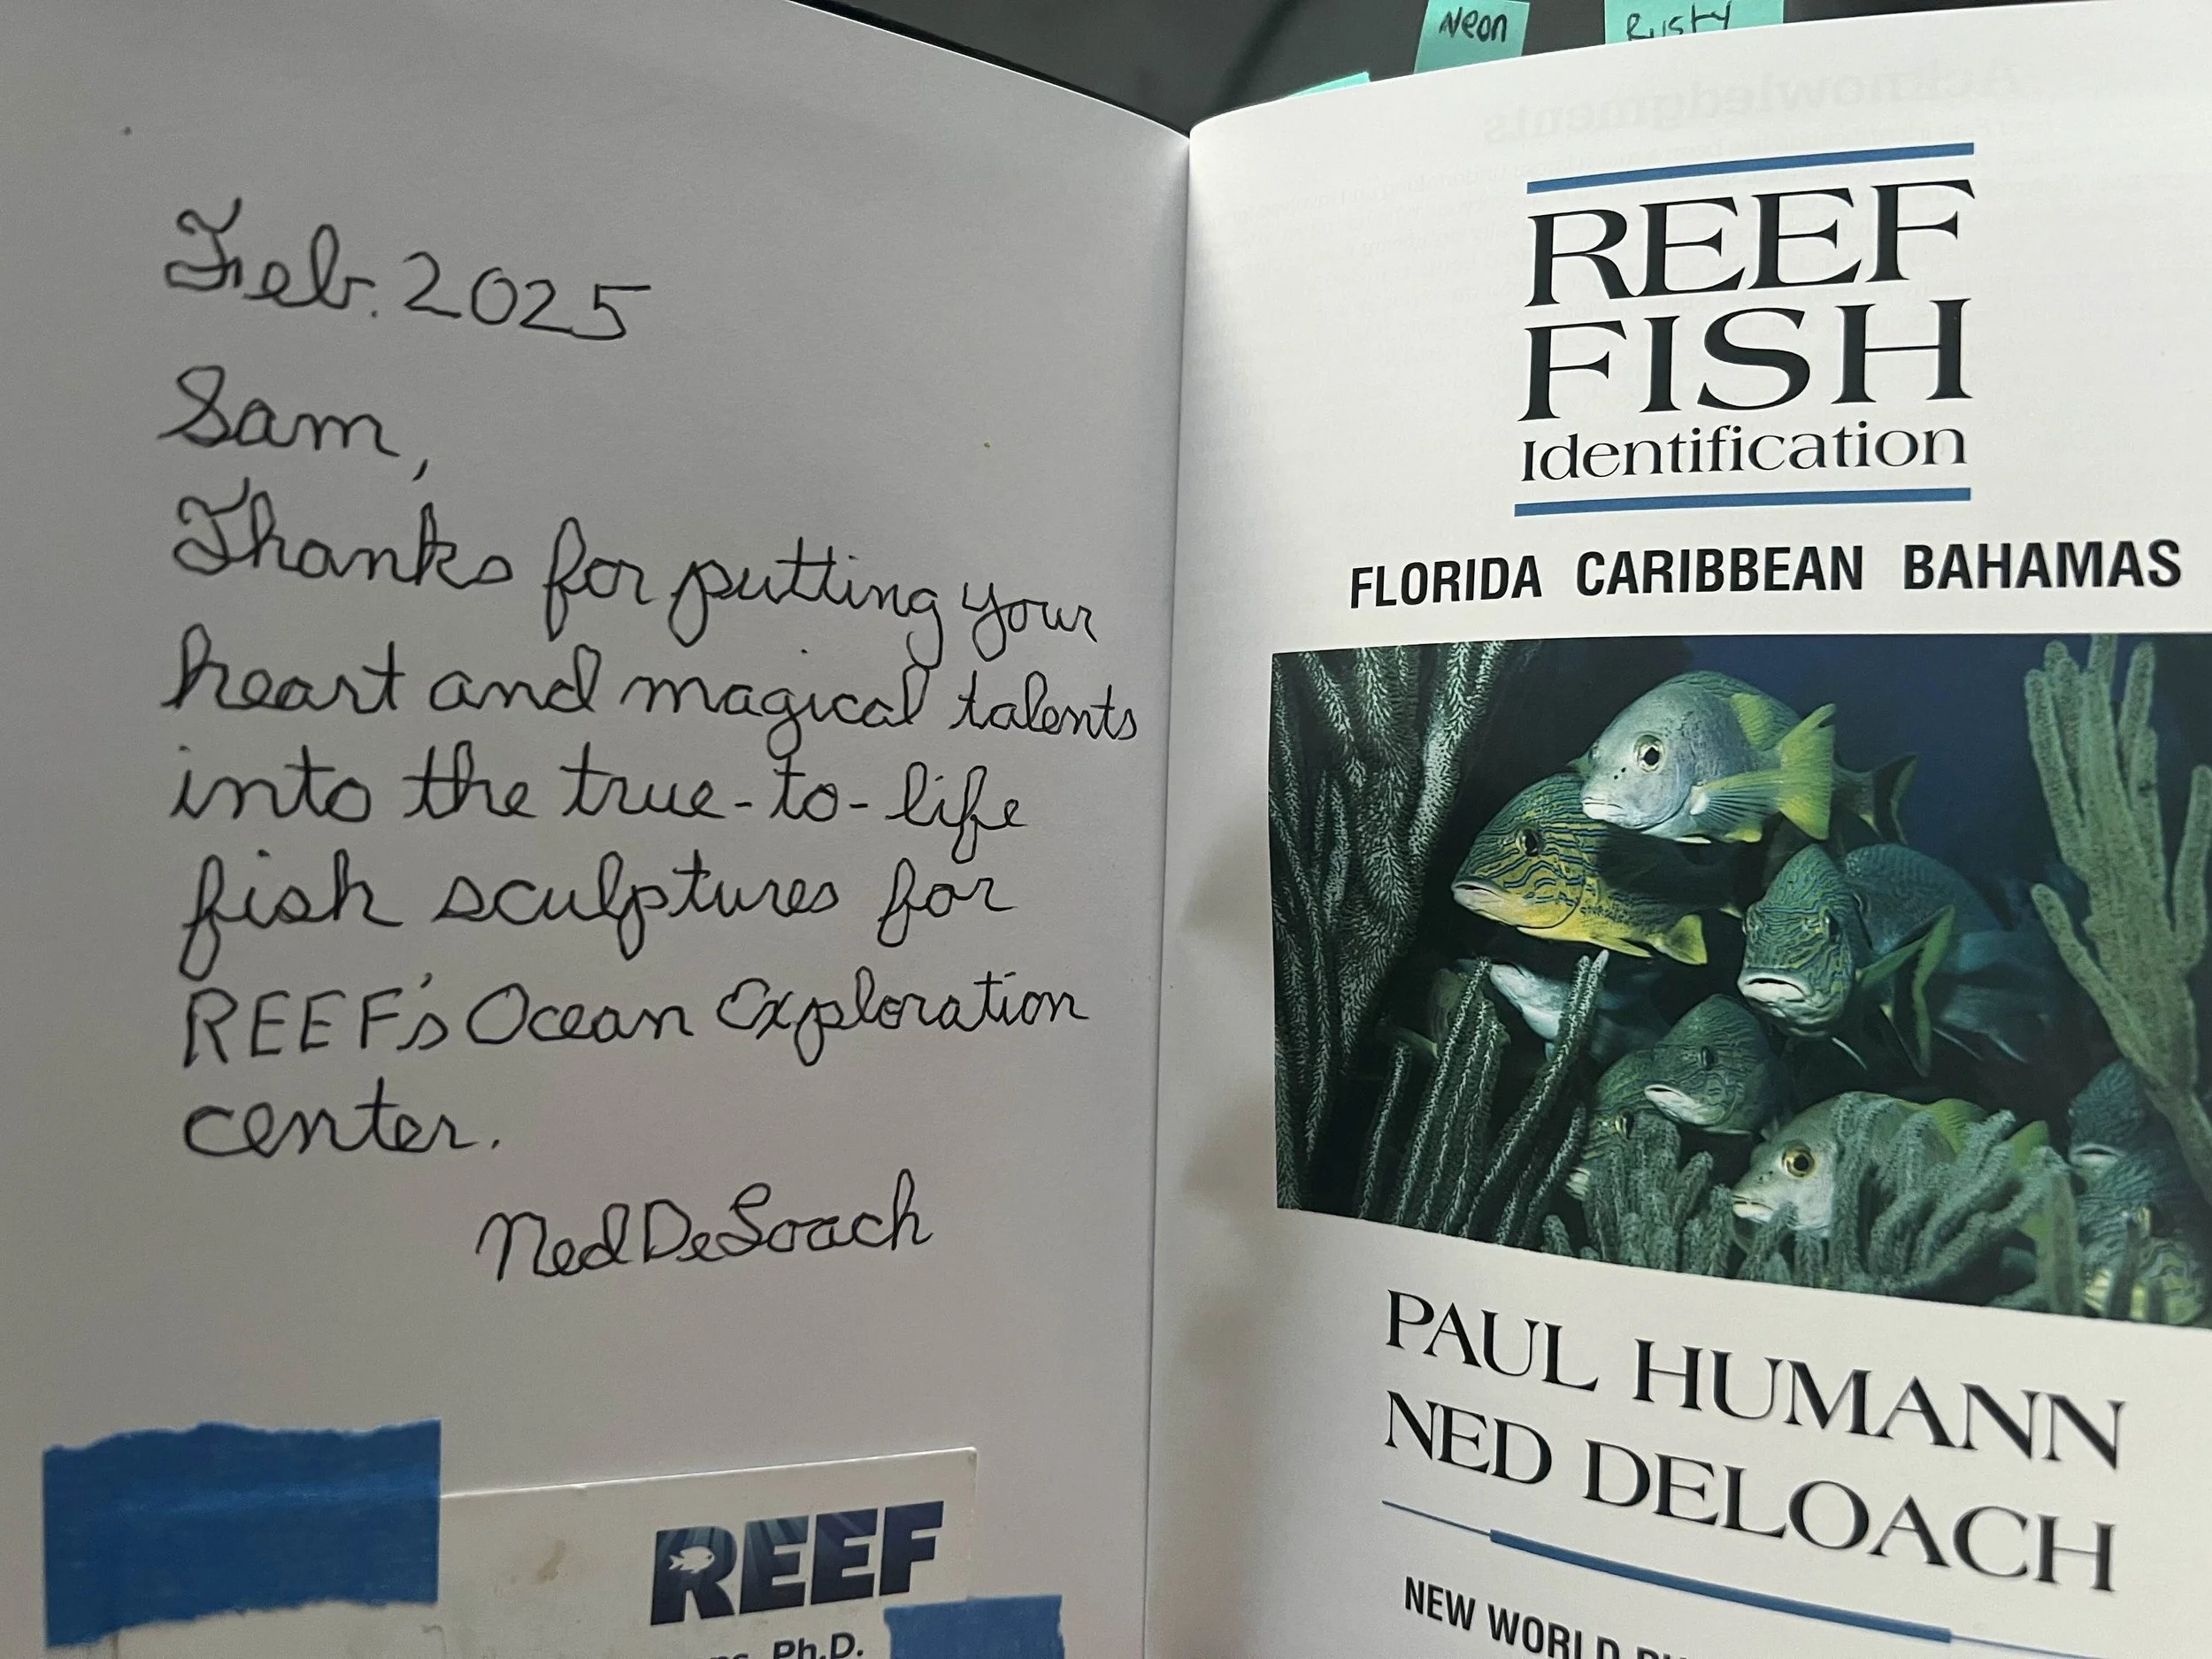 Neon
Rusty
Acknowledgments
Feb. 2025
Sam,
Thanks for putting your
heart and magical talents
into the true-to-life
fish sculptures for
REEF's Ocean Exploration
center.
Ned DeLoach
REEF
Ph.D.
REEF
FISH
Identification
FLORIDA CARIBBEAN BAHAMAS
PAUL HUMANN
NED DELOACH
NEW WORLD